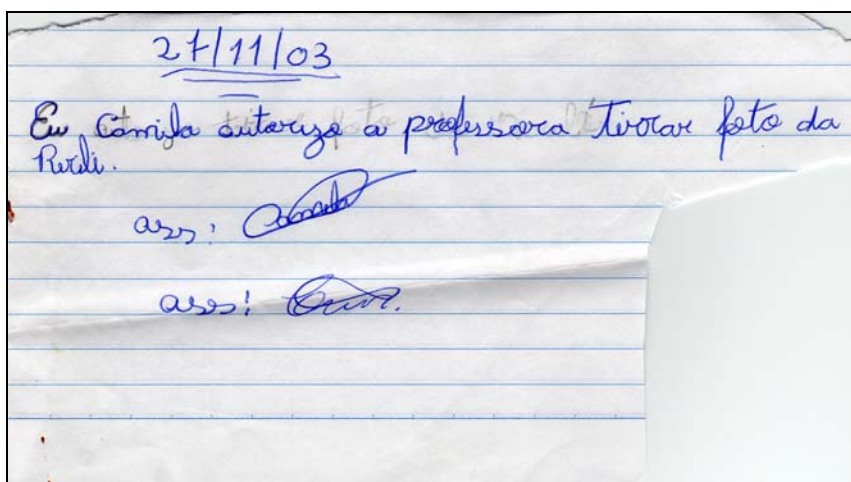 27/11/03
Eu Camila autorizo a professora tirrar foto da
ass: Camila
ass: